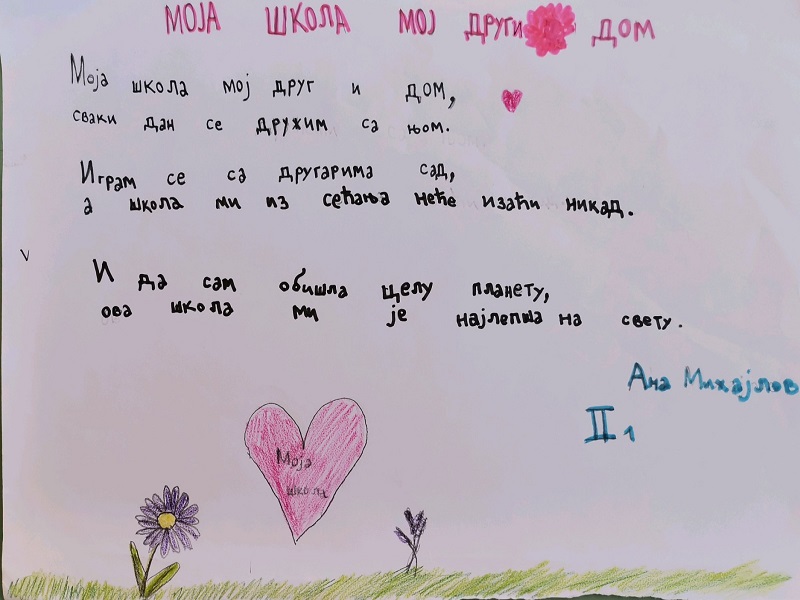 МОЈА ШКОЛА МОЈ ДРУГИ ДОМ
Моја школа мој друг и дом,
сваки дан се дружим са њом.
Играм се са другарима сад,
а школа ми из сећања неће изаћи никад.
И да сам обишла целу планету,
ова школа ми је најлепша на свету.
Ана Михајлов
II 1
Моја
школа